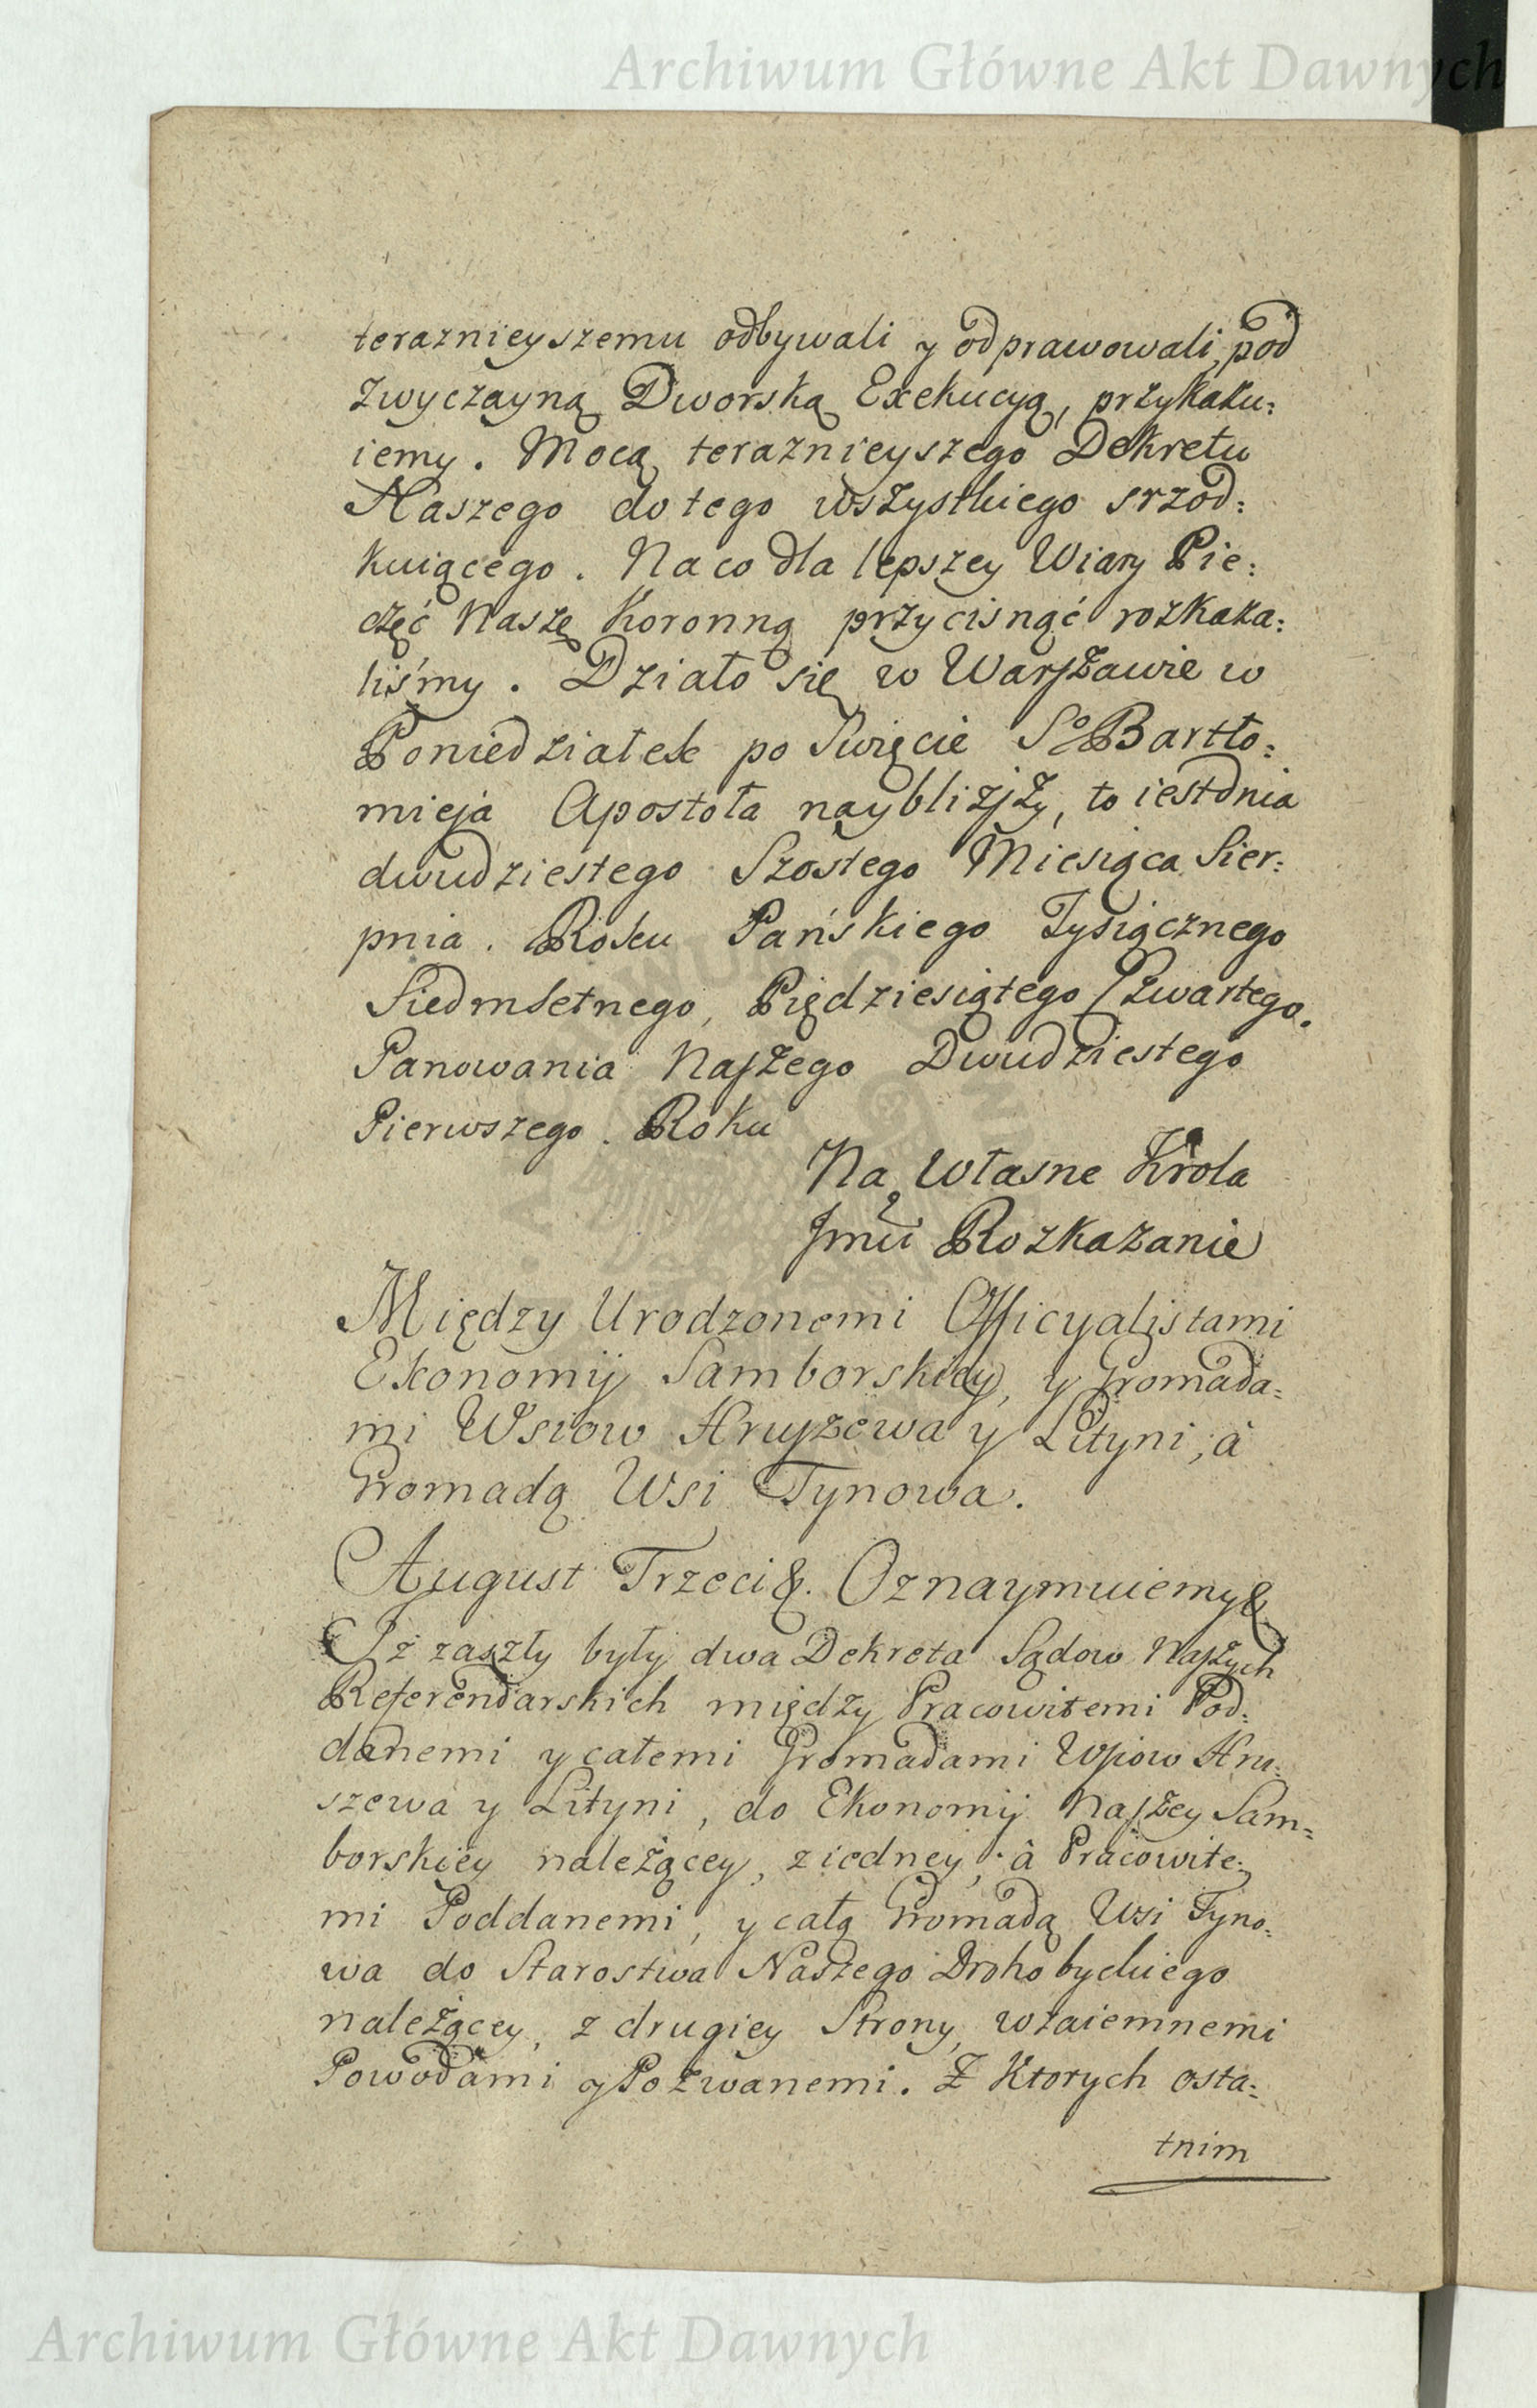 Archiwum Główne Akt Dawnych
teraznieyszemu odbywali y odprawowali, pod
zwyczayną Dworską Exekucyą, przykazu:
iemy. Mocą teraznieyszego Dekretu
Naszego do tego wszystkiego srzod:
kuiącego. Na co dla lepszey Wiary Pie:
częć Naszę Koronną przycisnąć rozkaza:
liśmy. Działo się w Warszawie w
Poniedziałek po Swięcie So Bartło:
mieja Apostoła nayblizszy, to iest dnia
dwudziestego Szostego Miesiąca Sier:
pnia. Roku Pańskiego Tysiącznego
Siedmsetnego, Piędziesiątego Czwartego.
Panowania Naszego Dwudziestego
Pierwszego. Roku
Na Własne Krola
Jmći Rozkazanie
Między Urodzonemi Officyalistami
Ekonomij Samborskiey, y Gromada:
mi Wsiow Hruszewa y Lityni, à
Gromadą Wsi Tynowa.
August Trzeci &. Oznaymuiemy &
Iż zaszły były dwa Dekreta Sądow Naszych
Referendarskich między Pracowitemi Pod:
danemi y całemi Gromadami Wsiow Hru:
szewa y Lityni, do Ekonomij Naszey Sam:
borskiey należącey, z iedney, à Pracowite:
mi Poddanemi, y całą Gromadą Wsi Tyno:
wa do Starostwa Naszego Drohobyckiego
należącey, z drugiey Strony, wzaiemnemi
Powodami y Pozwanemi. Z Ktorych osta:
tnim
Archiwum Główne Akt Dawnych